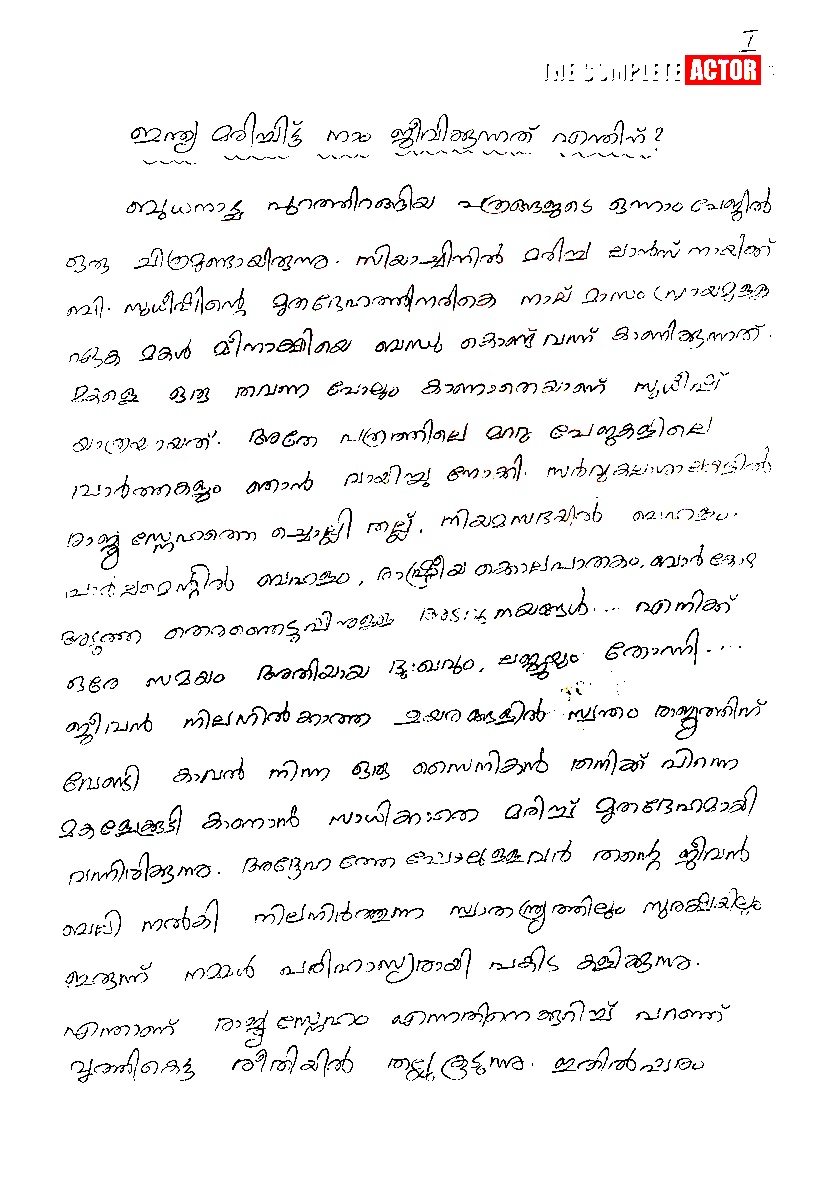 I
THE COMPLETE ACTOR
ഇന്ത്യ മരിച്ചിട്ട് നാം ജീവിക്കുന്നത് എന്തിന്?
ബുധനാഴ്ച പുറത്തിറങ്ങിയ പത്രങ്ങളുടെ ഒന്നാം പേജിൽ
ഒരു ചിത്രമുണ്ടായിരുന്നു. സിയാച്ചിനിൽ മരിച്ച ലാൻസ് നായിക്ക്
ബി. സുധീഷിന്റെ മൃതദേഹത്തിനരികെ നാല് മാസം പ്രായമുള്ള
ഏക മകൾ മീനാക്ഷിയെ ബന്ധു കൊണ്ട് വന്ന് കാണിക്കുന്നത്.
മകളെ ഒരു തവണ പോലും കാണാതെയാണ് സുധീഷ്
യാത്രയായത്. അതേ പത്രത്തിലെ മറ്റു പേജുകളിലെ
വാർത്തകളും ഞാൻ വായിച്ചു നോക്കി. സർവ്വകലാശാലകളിൽ
രാജ്യ സ്നേഹത്തെ ചൊല്ലി തല്ല്, നിയമസഭയിൽ ബഹളം.
പാർലമെന്റിൽ ബഹളം, രാഷ്ട്രീയ കൊലപാതകം, ബാർ കോഴ
അടുത്ത തെരഞ്ഞെടുപ്പിനുള്ള അടവു നയങ്ങൾ... എനിക്ക്
ഒരേ സമയം അതിയായ ദുഃഖവും, ലജ്ജയും തോന്നി....
ജീവൻ നിലനിൽക്കാത്ത ഉയരങ്ങളിൽ സ്വന്തം രാജ്യത്തിന്
വേണ്ടി കാവൽ നിന്ന ഒരു സൈനികൻ തനിക്ക് പിറന്ന
മകളേക്കൂടി കാണാൻ സാധിക്കാതെ മരിച്ച് മൃതദേഹമായി
വന്നിരിക്കുന്നു. അദ്ദേഹത്തേ പോലുള്ളവർ തന്റെ ജീവൻ
ബലി നൽകി നിലനിർത്തുന്ന സ്വാതന്ത്ര്യത്തിലും സുരക്ഷയിലും
ഇരുന്ന് നമ്മൾ പരിഹാസ്യരായി പകിട കളിക്കുന്നു.
എന്താണ് രാജ്യ സ്നേഹം എന്നതിനെക്കുറിച്ച് പറഞ്ഞ്
വൃത്തികെട്ട രീതിയിൽ തല്ലുകൂടുന്നു. ഇതിൽഹ്വരം